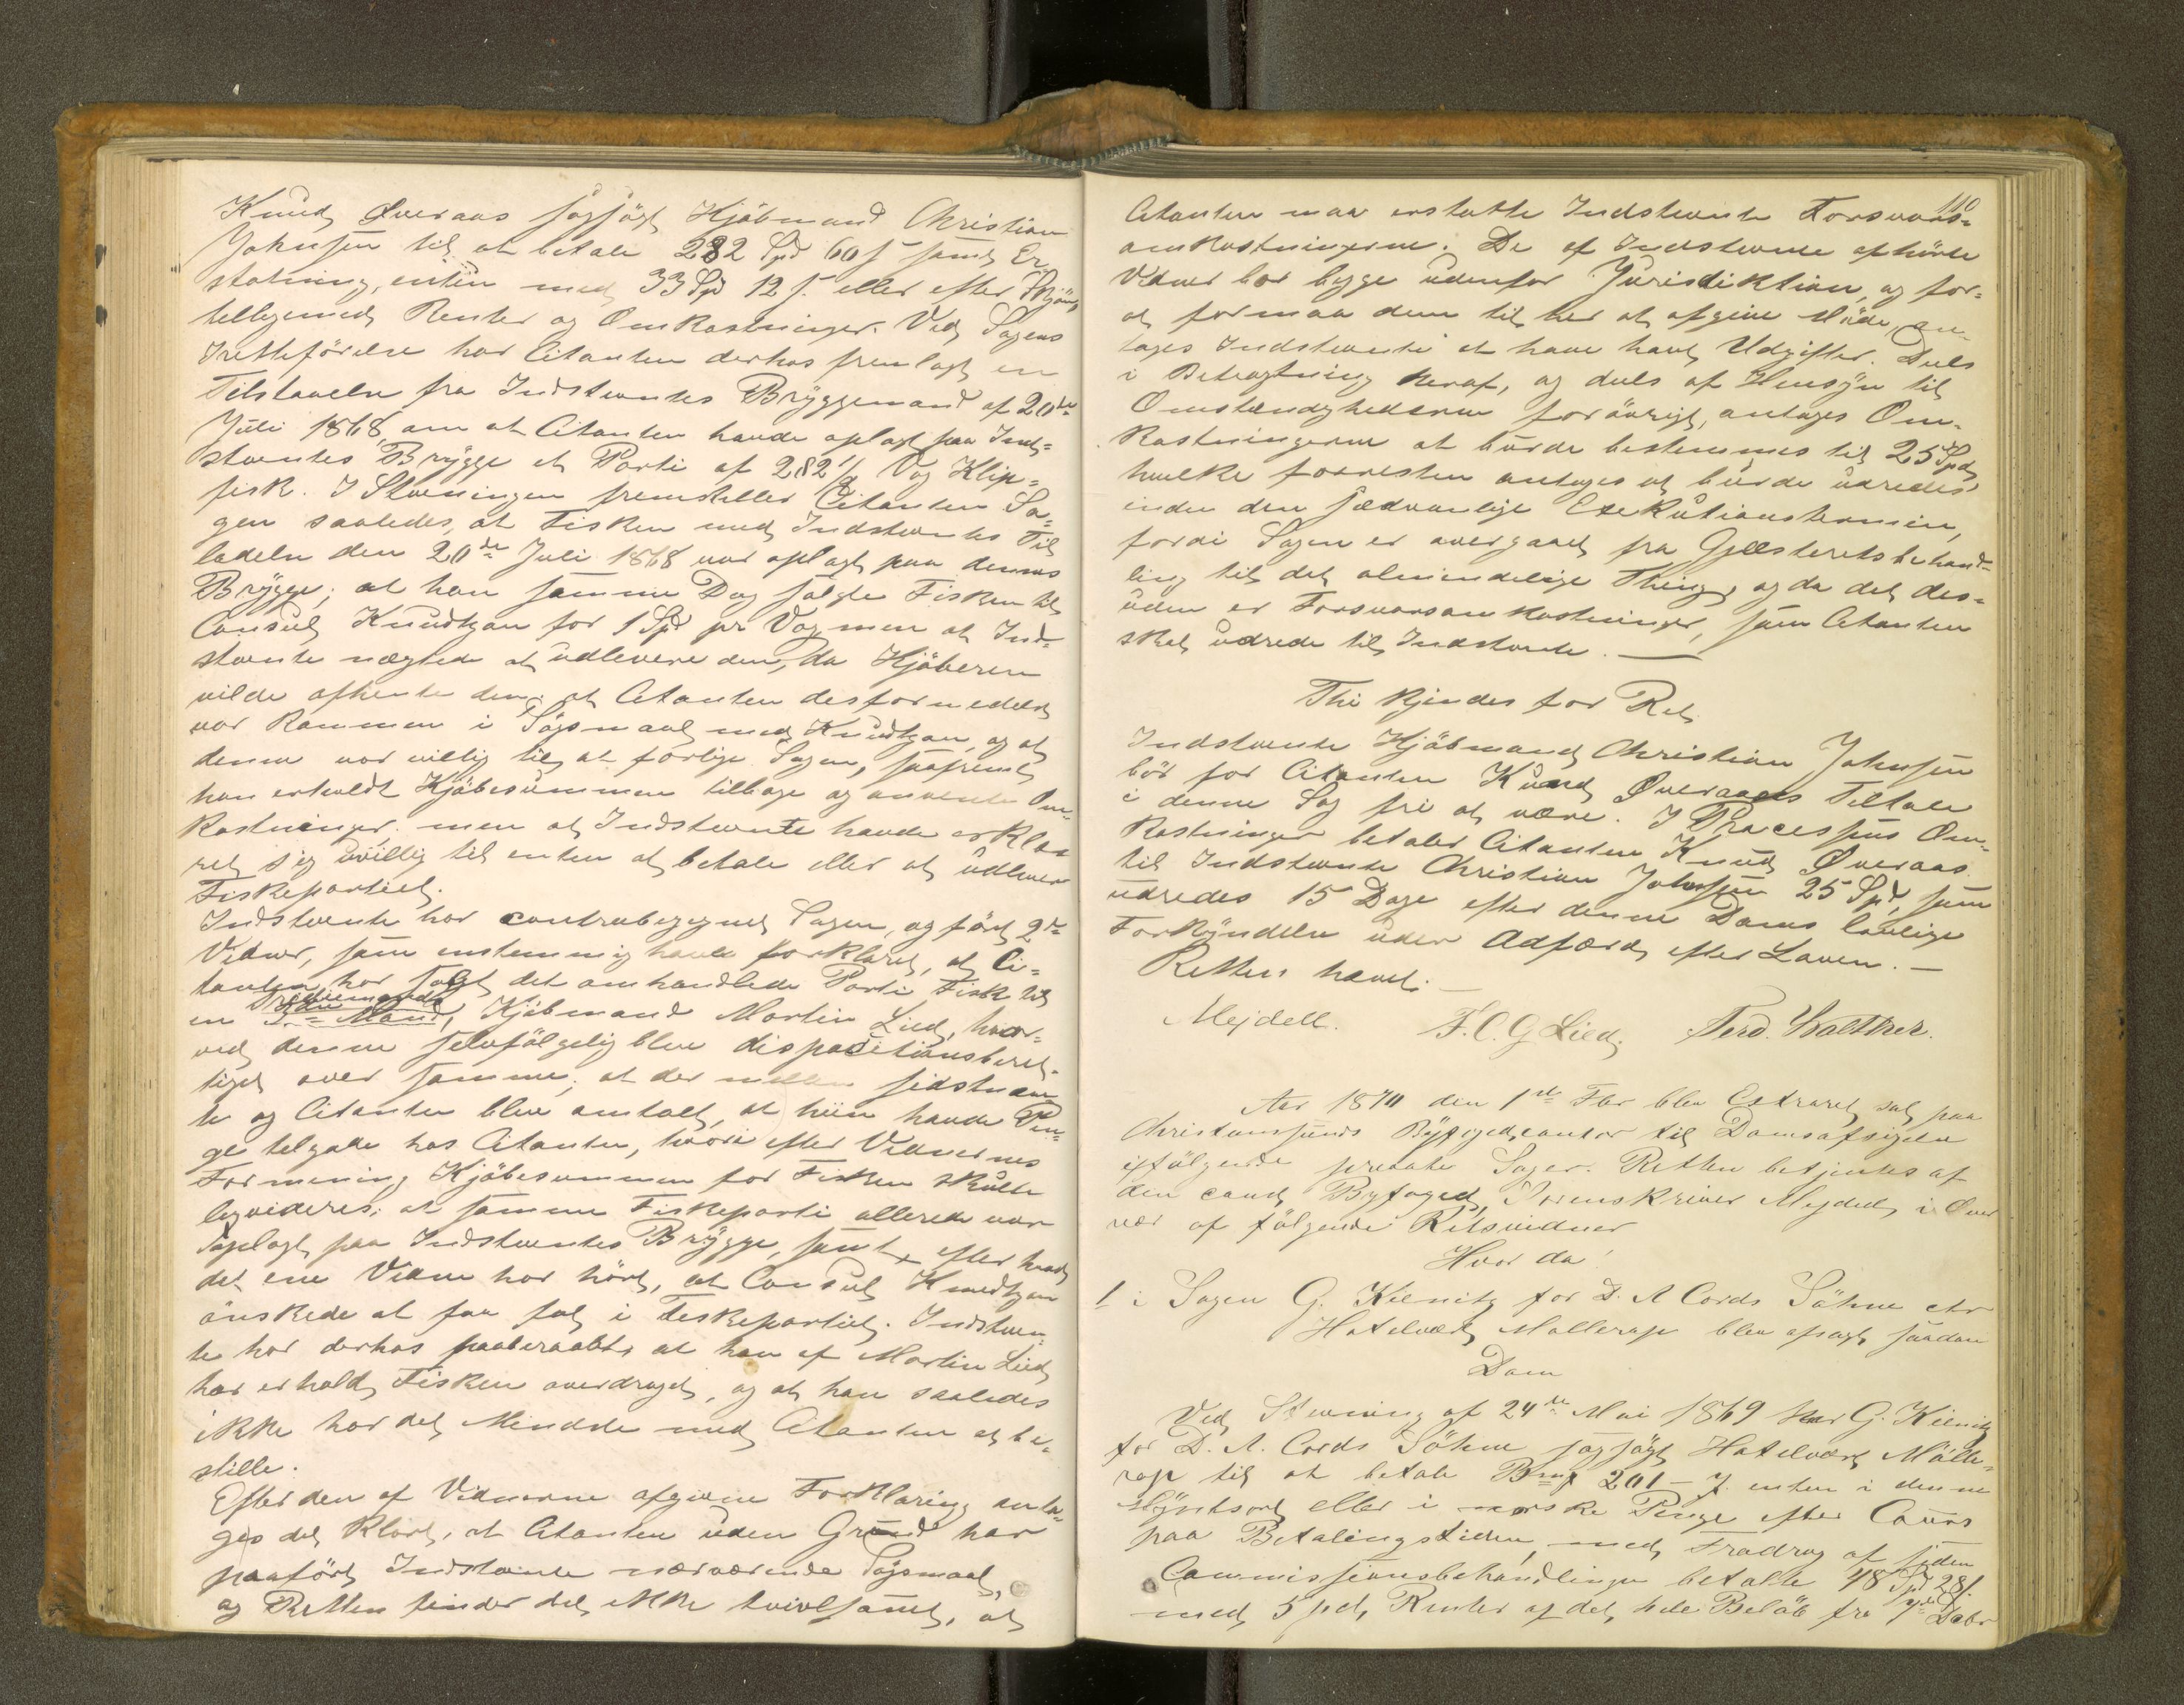 Knud Øveraas sagsøgt Kjøbmand Christian
Johnsen til at betale 282 Spd 60 s samt Er
statning, enten med 33 Spd 12 s. eller efter Skjøn,
tilligemed Renter og Omkostninger. Ved Sagens
Iretteførelse har Citanten derhos fremlagt en
Tilstaaelse fra Indstevntes Bryggemand af 20de
Juli 1868, om at Citanten havde oplagt paa Ind-
stevntes Brygge et Parti af 282 1/2 Vog Klip-
fisk. I Stevningen fremstiller Citanten Sa-
gen saaledes, at Fisken med Indstevntes Til
ladelse den 20de Juli 1868 var oplagt paa dennes
Brygge; at han samme Dag solgte Fisken til
Consul Knudtzon for 1 Spd pr Vog, men at Ind-
stevnte nægtede at udlevere den, da Kjøberen
vilde afhente den; at Citanten desformedelst
var kommen i Søgsmaal med Knudtzon, og at
denne var villig til at forlige Sagen, saafremt
han erholdt Kjøbesummen tilbage og anvendte Om-
kostninger. men at Indstevnte havde erklæ
ret sig uvillig til enten at betale eller at udlevere
Fiskepartiet.
Indstevnte har contrabegegnet Sagen, og ført 2de
Vidner, som enstemmig have forklaret, at Ci-
tanten har solgt det omhandlede Parti Fisk til
en Trediemand, Kjøbmand Martin Lied, hvor-
ved denne selvfølgelig blev dispositionsberet-
tiget over samme; at der mellem sidstnævn
te og Citanten blev omtalt, at hiin havde Pen-
ge tilgode hos Citanten, hvori efter Vidnernes
Formening Kjøbesummen for Fisken skulle
liqvideres; at samme Fiskeparti allerede var
oplagt paa Indstevntes Brygge, samt efter hvad
det ene Vidne har hørt, at Consul Knudtzon
ønskede at faa fat i Fiskepartiet. Indstevn
te har derhos paaberaabt, at han af Martin Lied
har erholdt Fisken overdraget, og at han saaledes
ikke har det Mindste med Citanten at be-
stille.
Efter den af Vidnerne afgivne Forklaring anta-
ges det klart, at Citanten uden Grund har
paaført Indstevnte nærværende Søgsmaal,
og Retten finder det ikke tvivlsomt, at
110
Citanten maa erstatte Indstevnte Forsvars-
omkostningerne. De af Indstevnte afhørte
Vidner bor begge udenfor Jurisdiktion, og for-
at formaa dem til her at afgive Møde, an-
tages Indstevnte at have havt Udgifter. Deels
i Betragtning heraf, og deels af Hensyn til
Omstændighederne forøvrigt, antages Om-
kostningerne at burde bestemmes til 25 Spd,
hvilke forresten antages at burde udredes
inden den sædvanlige Exekutionstermin,
fordi Sagen er overgaaet fra Gjæsteretsbehand-
ling til det almindelige Thing, og da det des-
uden er Forsvarsomkostninger, som Citanten
skal udrede til Indstevnte.
Thi kjendes for Ret
Indstevnte Kjøbmand Christian Johnsen
bør for Citanten Knud Øveraas Tiltale
i denne Sag fri at være. I Processens Om-
kostninger betaler Citanten Knud Øveraas
til Indstevnte Christian Johnsen 25 Spd, som
udredes 15 Dage efter denne Doms lovlige
Forkyndelse under Adfærd efter Loven.
Retten hævet.
Mejdell. F. C. G Lied. Ferd. Walther.
Aar 1870 den 1ste Fbr blev Extraret sat paa
Christianssunds Byfogedcontor til Domsafsigelse
ifølgende private Sager. Retten betjentes af
den const Byfoged, Sorenskriver Mejdell, i Over
vær af følgende Retsvidner
Hvor da:
1 i Sagen G. Kienitz for D. A Cords Söhne ctr
Hotelvært Møllerop blev afsagt saadan
Dom
Ved Stevning af 24de Mai 1869 har G. Kienitz
for D. A. Cords Söhne sagsøgt Hotelvært Mølle-
rop til at betale 201 enten i denne
Myntsort eller i norske Penge efter Cours
paa Betalingstiden, med Fradrag af siden
Commissionsbehandlingen betalte 48 Spd 28 s.
med 5 pct Renter af det hele Beløb fra